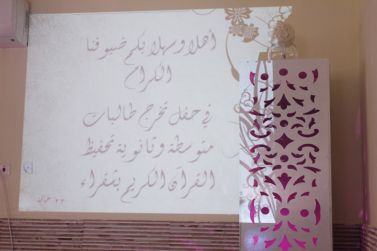 أهلا وسهلا بكم ضيوفنا
الكرام
في حفل تخرج طالبات
متوسطة وثانوية تحفيظ
القرآن الكريم بشقراء